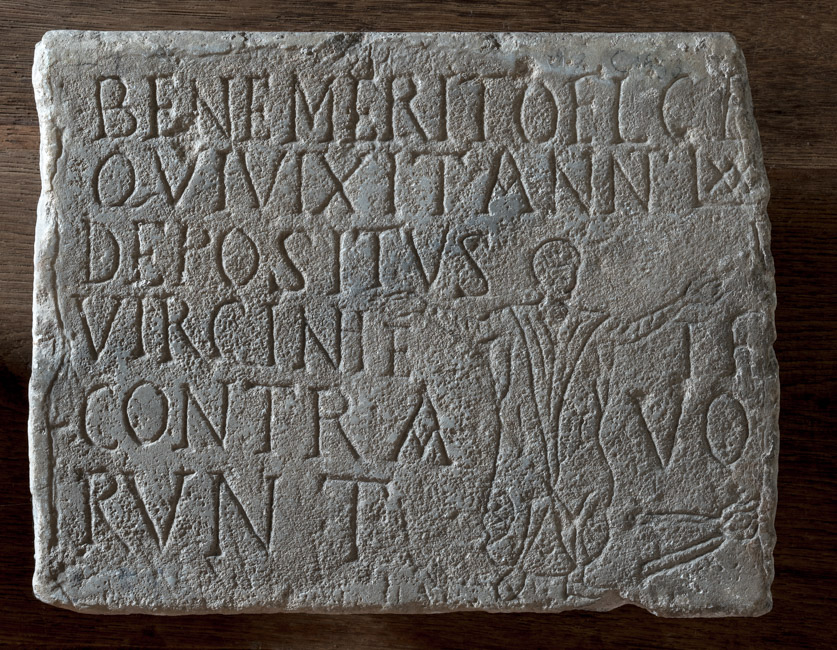 BENEMERITOFLC
QVIVIXITANN LXX
DEPOSITVS
VIRGINIE
CONTRA VO
RVNT